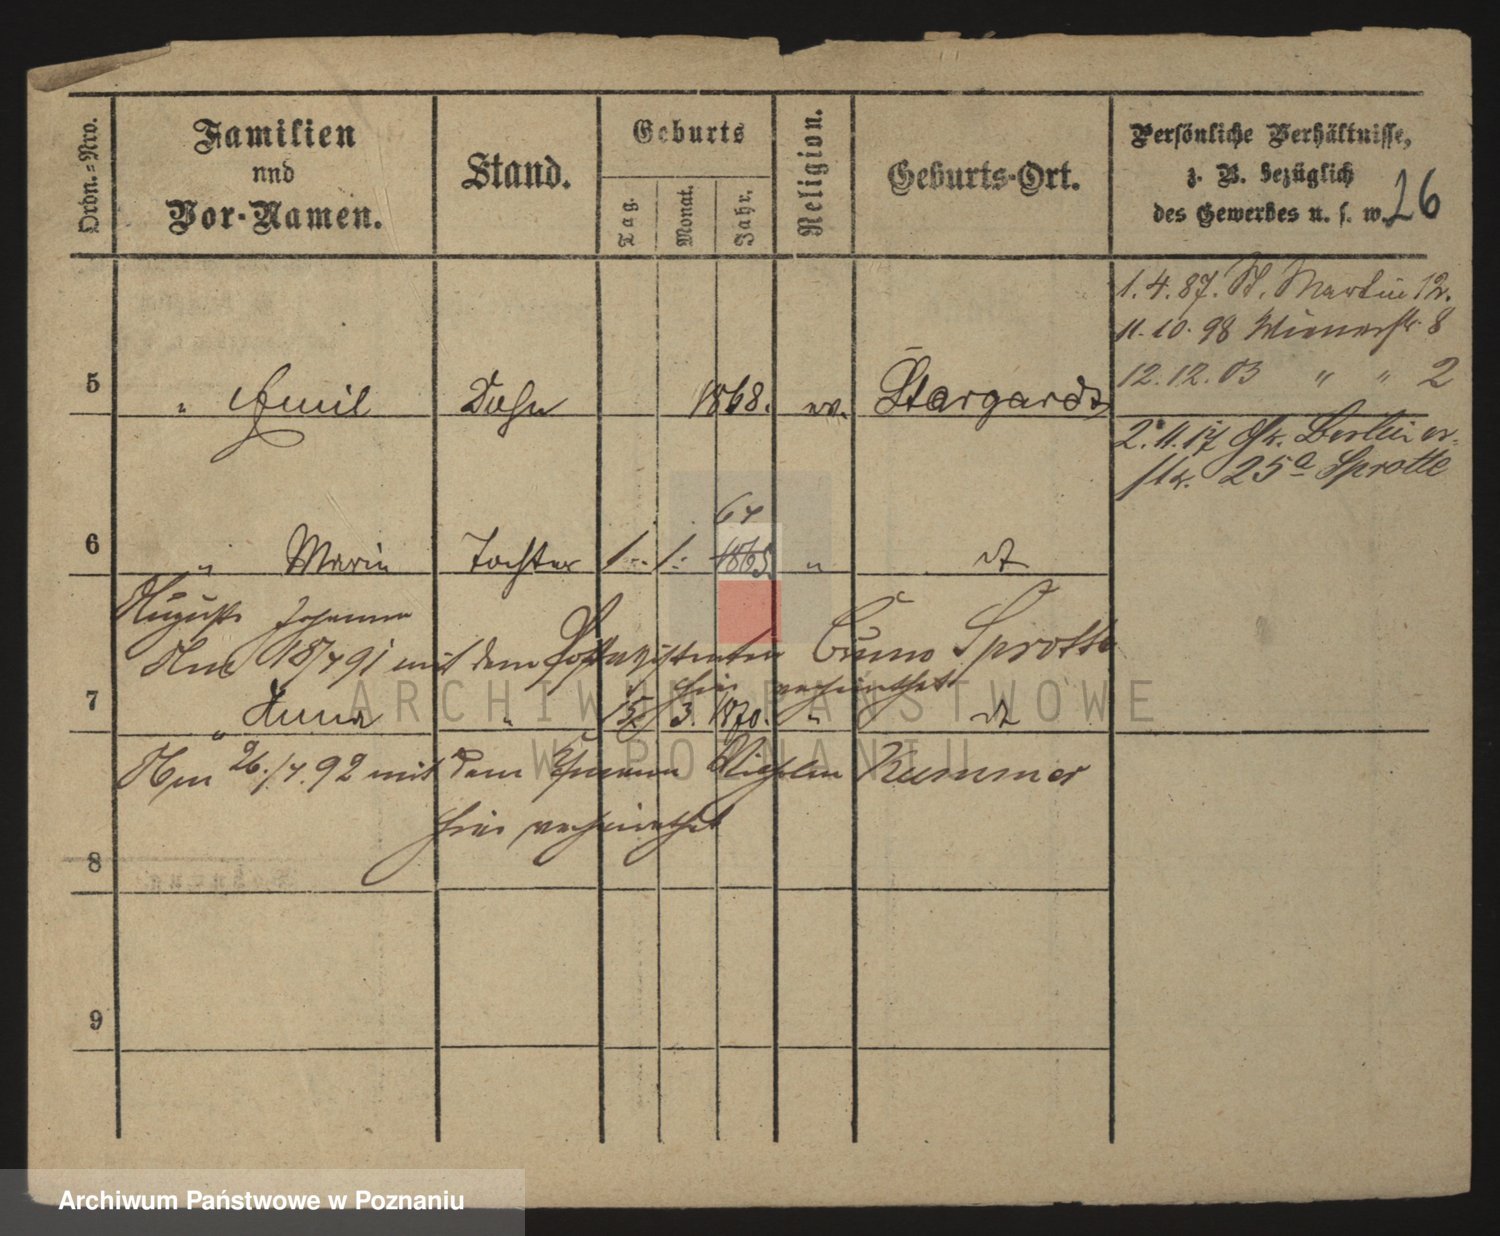 Ordn.-Nro.
Familien
und
Vor-Namen.
Stand.
Geburts
Tag.
Monat.
Jahr.
Religion.
Geburts-Ort.
Persönliche Verhältnisse,
z. B. bezüglich
des Gewerbes u. s. w.
26
1. 4. 87. St. Martin 12.
11. 10. 98 Wienerstr. 8
12. 12. 03 " " 2
5 " Emil Sohn 1868. ev. Stargardt
2. 11. 17 Berliner-
str. 25a Sprotte
64
6 " Marie Tochter 1. 1. 1865 " dt
Auguste Johanna
Am 18/4 91 mit dem Postassistenten Bruno Sprotte
hier verheirathet
7 " Anna " 15. 3. 1870. " dt
Am 26./4. 92 mit dem Kummer
hier verheirathet
8
9
ARCHIWUM PAŃSTWOWE
W POZNANIU
Archiwum Państwowe w Poznaniu